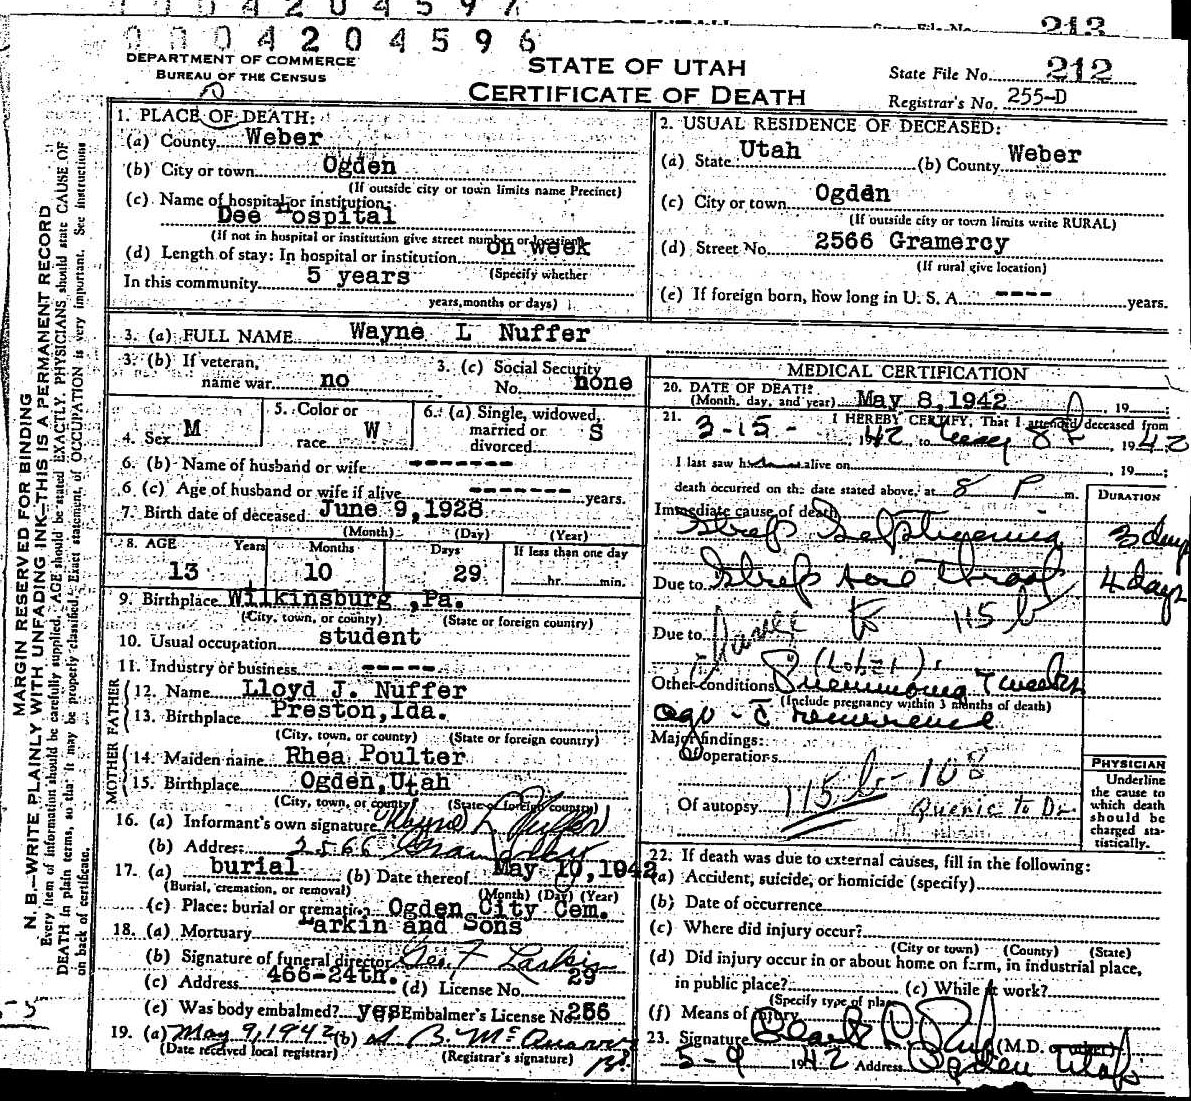 0 0 0 4 2 0 4 5 9 6
213
DEPARTMENT OF COMMERCE
BUREAU OF THE CENSUS
STATE OF UTAH
CERTIFICATE OF DEATH
State File No. 212
Registrar's No. 255-D
MARGIN RESERVED FOR BINDING
N. B.—WRITE PLAINLY WITH UNFADING INK—THIS IS A PERMANENT RECORD
Every item of information should be carefully supplied. AGE should be stated EXACTLY. PHYSICIANS should state CAUSE OF
DEATH in plain terms, so that it may be properly classified. Exact statement of OCCUPATION is very important. See instructions
on back of certificate.
1. PLACE OF DEATH:
(a) County Weber
(b) City or town Ogden
(If outside city or town limits name Precinct)
(c) Name of hospital or institution:
Dee Hospital
(If not in hospital or institution give street number or location)
(d) Length of stay: In hospital or institution on week
(Specify whether
In this community 5 years
years, months or days)
2. USUAL RESIDENCE OF DECEASED:
(a) State Utah (b) County Weber
(c) City or town Ogden
(If outside city or town limits write RURAL)
(d) Street No. 2566 Gramercy
(If rural give location)
(e) If foreign born, how long in U. S. A. ---- years.
3. (a) FULL NAME Wayne L Nuffer
3. (b) If veteran,
name war no
3. (c) Social Security
No. none
4. Sex M
5. Color or
race W
6. (a) Single, widowed,
married or
divorced S
6. (b) Name of husband or wife -------
6 (c) Age of husband or wife if alive ------- years.
7. Birth date of deceased June 9, 1928
(Month) (Day) (Year)
8. AGE Years Months Days If less than one day
13 10 29 hr. min.
9. Birthplace Wilkinsburg ,Pa.
(City, town, or county) (State or foreign country)
10. Usual occupation student
11. Industry or business -----
FATHER
12. Name Lloyd J. Nuffer
13. Birthplace Preston, Ida.
(City, town, or county) (State or foreign country)
MOTHER
14. Maiden name Rhea Poulter
15. Birthplace Ogden, Utah
(City, town, or county) (State or foreign country)
16. (a) Informant's own signature
(b) Address 2566
17. (a) burial (b) Date thereof May 10, 1942
(Burial, cremation, or removal) (Month) (Day) (Year)
(c) Place: burial or cremation Ogden City Cem.
18. (a) Mortuary Larkin and Sons
(b) Signature of funeral director Geo. F Larkin
(c) Address 466-24th. (d) License No. 29
(e) Was body embalmed? yes Embalmer's License No. 266
19. (a) May 9, 1942 (b)
(Date received local registrar) (Registrar's signature)
MEDICAL CERTIFICATION
20. DATE OF DEATH:
(Month, day, and year) May 8, 1942, 19
21. I HEREBY CERTIFY, That I attended deceased from
3-15-, 1942 to May 8, 1942
I last saw h alive on , 19 ;
death occurred on the date stated above, at 8 P m.
DURATION
Immediate cause of death
Strep Septicemia 3 days
Due to Strep sore throat 4 days
Due to 115 b
(Lobar)
Other conditions Pneumonia 7 weeks
(Include pregnancy within 3 months of death)
ago - c recurrence
Major findings:
Of operations
Of autopsy 115 b - 108
PHYSICIAN
Underline
the cause to
which death
should be
charged sta-
tistically.
22. If death was due to external causes, fill in the following:
(a) Accident, suicide, or homicide (specify)
(b) Date of occurrence
(c) Where did injury occur?
(City or town) (County) (State)
(d) Did injury occur in or about home on farm, in industrial place,
in public place? (e) While at work?
(Specify type of place)
(f) Means of injury
23. Signature (M.D. or other)
5-9 1942 Address Ogden Utah